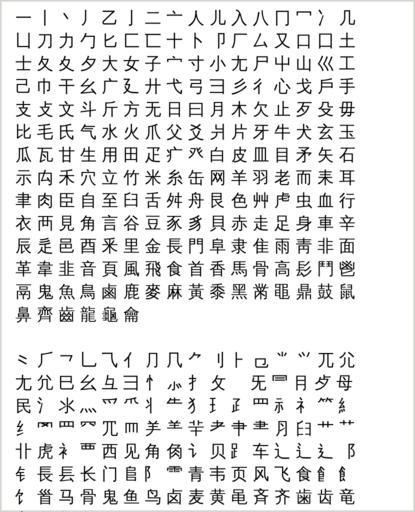 一丨丶丿乙亅二亠人儿入八冂冖冫几
凵刀力勹匕匚匸十卜卩厂厶又口囗土
士夂夊夕大女子宀寸小尢尸屮山巛工
己巾干幺广廴廾弋弓彐彡彳心戈戶手
支攴文斗斤方无日曰月木欠止歹殳毋
比毛氏气水火爪父爻爿片牙牛犬玄玉
瓜瓦甘生用田疋疒癶白皮皿目矛矢石
示禸禾穴立竹米糸缶网羊羽老而耒耳
聿肉臣自至臼舌舛舟艮色艸虍虫血行
衣襾見角言谷豆豕豸貝赤走足身車辛
辰辵邑酉釆里金長門阜隶隹雨靑非面
革韋韭音頁風飛食首香馬骨高髟鬥鬯
鬲鬼魚鳥鹵鹿麥麻黃黍黑黹黽鼎鼓鼠
鼻齊齒龍龜龠
⺀⺁⺂⺃⺄⺅⺆⺇⺈⺉⺊⺋⺌⺍⺎⺏
⺐⺑⺒⺓⺔⺕⺖⺗⺘⺙ ⺛⺜⺝⺞⺟
⺠⺡⺢⺣⺤⺥⺦⺧⺨⺩⺪⺫⺬⺭⺮⺯
⺰⺱⺲⺳⺴⺵⺶⺷⺸⺹⺺⺻⺼⺽⺾⺿
⻀⻁⻂⻃⻄⻅⻆⻇⻈⻉⻊⻋⻌⻍⻎⻏
⻐⻑⻒⻓⻔⻕⻖⻗⻘⻙⻚⻛⻜⻝⻞⻟
⻠⻡⻢⻣⻤⻥⻦⻧⻨⻩⻪⻫⻬⻭⻮⻯